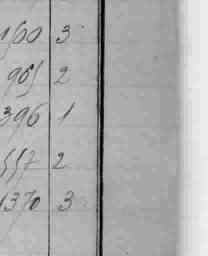 1560 3
965 2
396 1
557 2
1370 3